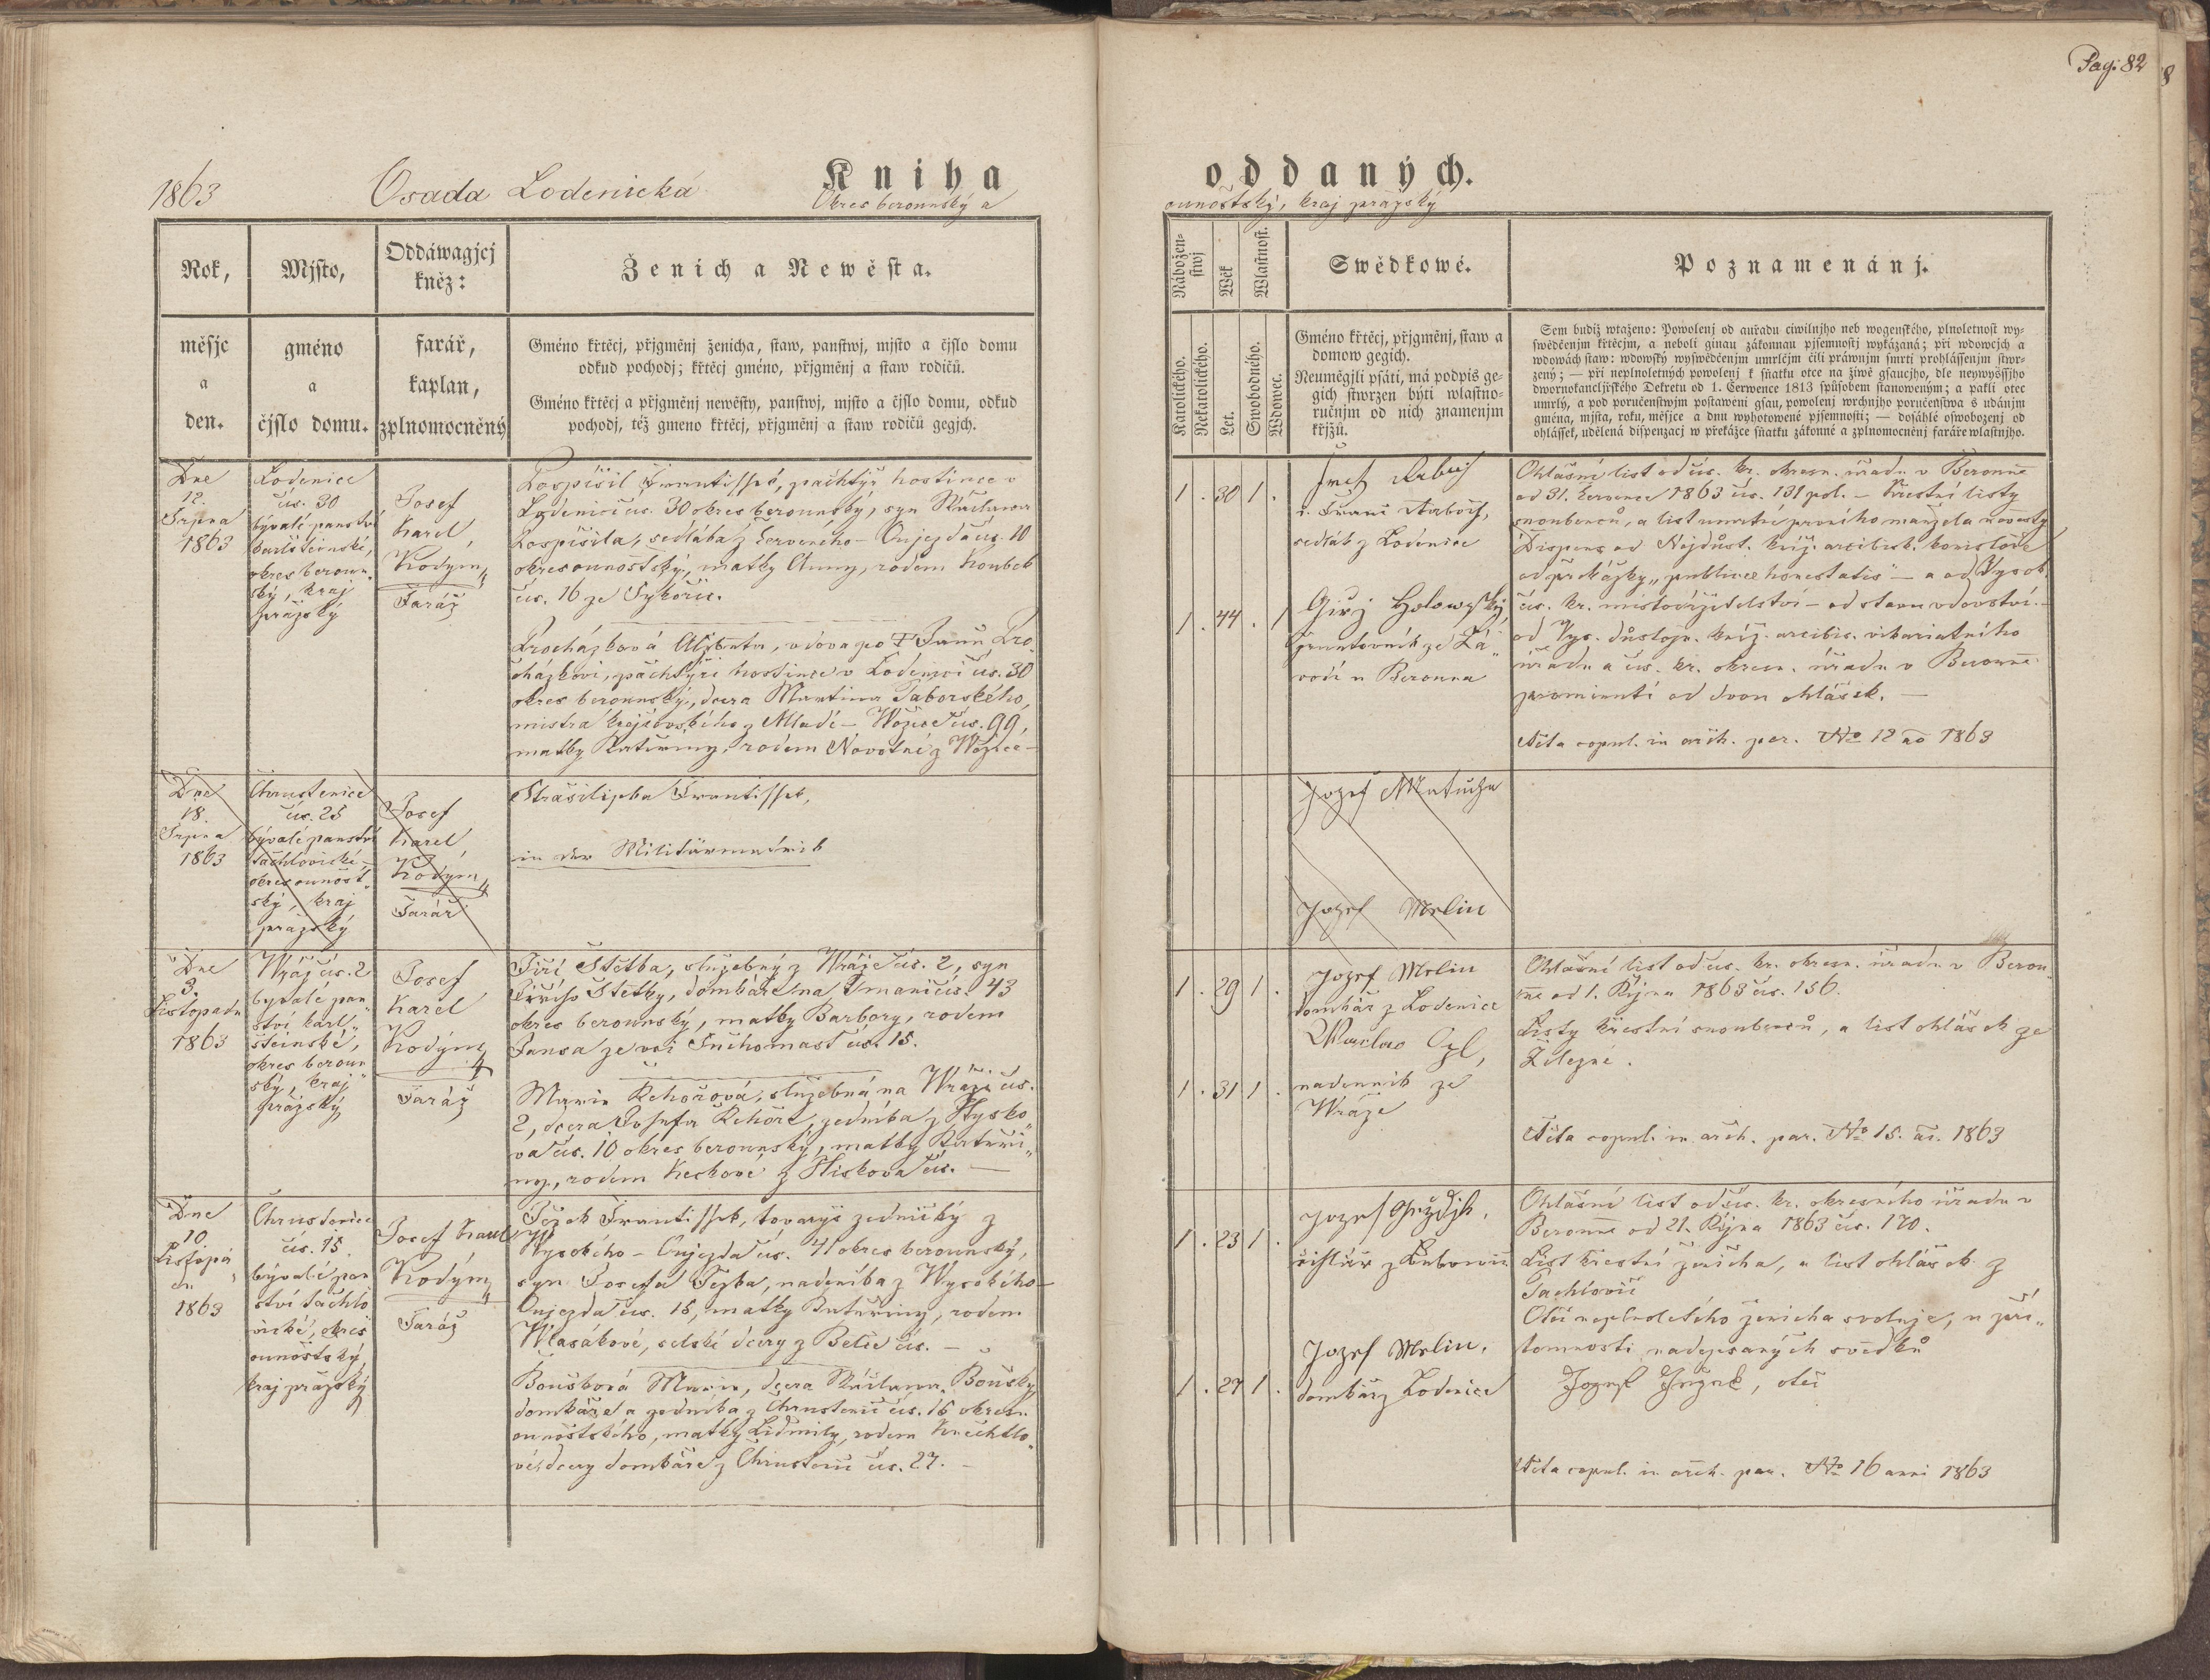 Pag: 82
8
1863
Osada Lodenická
Kniha
Okres berounský a
oddaných.
ounoštský, kraj pražský
Rok,
Mjsto,
Oddáwagjcj
kněz:
Ženich a Newěsta.
měsjc
a
den.
gméno
a
čjslo domu.
farář,
kaplan,
zplnomocněný
Gméno křtěcj, přjgměnj ženicha, staw, panstwj, mjsto a čjslo domu
odkud pochodj; křtěcj gméno, přjgměnj a staw rodičů.
Gméno křtěcj a přjgměnj newěsty, panstwj, mjsto a čjslo domu, odkud
pochodj, též gmeno křtěcj, přjgměnj a staw rodičů gegjch.
Nábožen-
stwj
Wěk
Wlastnost.
Swědkowé.
Poznamenánj.
Katolického.
Nekatolického.
Let.
Swobodného.
Wdowec.
Gméno křtěcj, přjgměnj, staw a
domow gegich.
Neumějli psáti, má podpis ge-
gich stwrzen býti wlastno-
ručnjm od nich znamenjm
křjžů.
Sem budiž wtaženo: Powolenj od auřadu ciwilnjho neb wogenského, plnoletnost wy-
swědčenjm křtěcjm, a neboli ginau zákonnau pjsemnostj wykázaná; při wdowcjch a
wdowách staw: wdowský wyswědčenjm umrlčjm čili práwnjm smrti prohlássenjm stwr-
zený; — při neplnoletných powolenj k sňatku otce na žiwě gsaucjho, dle neywyššjho
dwornokancljřského Dekretu od 1. Července 1813 spůsobem stanoweným; a pakli otec
umrlý, a pod poručenstwjm postaweni gsau, powolenj wrchnjho poručenstwa s udánjm
gména, mjsta, roku, měsjce a dnu wyhotowené pjsemnosti; — dosáhlé oswobozenj od
ohlássek, udělená dispensacj w překážce sňatku zákonné a zplnomocněnj faráře wlastnjho.
Dne
12.
Srpna
1863
Lodenice
čís. 30
bývalé panství
karlšteinské,
okres beroun-
ský, kraj
pražský
Josef
Karel
Kodým,
Farář
Pospíšil František, pachtýř hostince v
Lodenici čís. 30 okres berounský, syn Václava
Pospíšila, sedláka z Červeného-Oujezda čís. 10
okres ounoštský, matky Anny, rodem Koubek
čís. 16 ze Sýkořic.
Procházková Alžbeta, vdova po † Janu Pro-
cházkovi, pachtýři hostince v Lodenici čís. 30
okres berounský, dcera Martina Táborského,
mistra krejčovského z Mladé-Wožice čís. 99,
matky Kateřiny, rodem Novotné z Wožice -
1 . 30 1 .
sedlák z Lodenice
1 . 44 . 1
Giřj Holowský
gruntovník ze Zá-
vodí u Berouna
Ohlášní list od čís. kr. okresn. úřadu v Berouně
od 31. července 1863 čís. 131 pol. — Křestní listy
snoubenců, a list umrtní prvního manžela nevesty
Dispens od Nejdůst. kníž. arcibisk. konsistoře
od překážky „publicae honestatis" — a od Vysok.
čís. kr. místodržitelství — od stavu vdovství. -
od Vys. důstojn. kníž. arcibis. vikariatního
úřadu a čís. kr. okresn. úřadu v Berouně
prominutí od dvou ohlášek. —
Acta copul. in arch. par. No 12 ao 1863
Dne
18.
Srpna
1863
Chrustenice
čís. 25
bývalé panství
tachlovické,
okres ounošt-
ský, kraj
pražský
Josef
Karel
Kodým,
Farář
Strašilipka František,
in der Militärmatrik
Jozef Matucha
Jozef Melin
Dne
3.
Listopadu
1863
Wráž čís. 2
bývalé pan-
ství karl-
šteinské,
okres beroun
ský, kraj
pražský
Josef
Karel
Kodým,
Farář
Jiří Stětka, služebný z Wráže čís. 2, syn
Jiřího Stětky, domkáře na Tmani čís. 43
okres berounský, matky Barbory, rodem
Jansa ze vsi Suchomast čís. 15.
Marie Řehořová, služebná na Wráži čís.
2, dcera Josefa Řehoře, zedníka z Hysko-
va čís. 10 okres berounský, matky Kateři-
ny, rodem Keckové z Hiskova čís. —
1 . 29 1 .
Jozef Melin
domkář z Lodenice
1 . 31 1 .
nadenník ze
Wráže
Ohlášní list od čís. kr. okresn. úřadu v Berou-
ně od 1. Října 1863 čís. 156.
Listy křestní snoubenců, a list ohlášek ze
Železné.
Acta copul. in arch. par. No 15. ai. 1863
Dne
10.
Listopa
du
1863
Chrustenice
čís. 15
bývalé pan
ství tachlo
vické, okres
ounoštský,
kraj pražský
Josef Karel
Kodým,
Farář
Ježek František, tovaryš zednický z
Vysokého-Oujezda čís. 41 okres berounský,
syn Josefa Ježka, nadeníka z Wysokého-
Oujezda čís. 15, matky Kateřiny, rodem
Wlasákové, selské dcery z Belče čís. —
Boušková Marie, dcera Václava Boušky
domkáře a zedníka z Chrustenic čís. 15 okresu
ounoštského, matky Lidmily, rodem Knechtlo-
vé, dcery domkáře z Chrustenic čís. 27. —
1 . 23 1 .
1 . 27 1 .
Jozef Melin.
domkář z Lodenice
Ohlášní list od čís. kr. okresního úřadu v
Berouně od 21. Října 1863 čís. 170.
List křestní ženicha, a list ohlášek z
Tachlovic
Otec neplnoletého ženicha svoluje, u pří-
tomnosti nadepsaných svědků
Jozef Ježek, otec
Acta copul. in arch. par. No 16 anni 1863